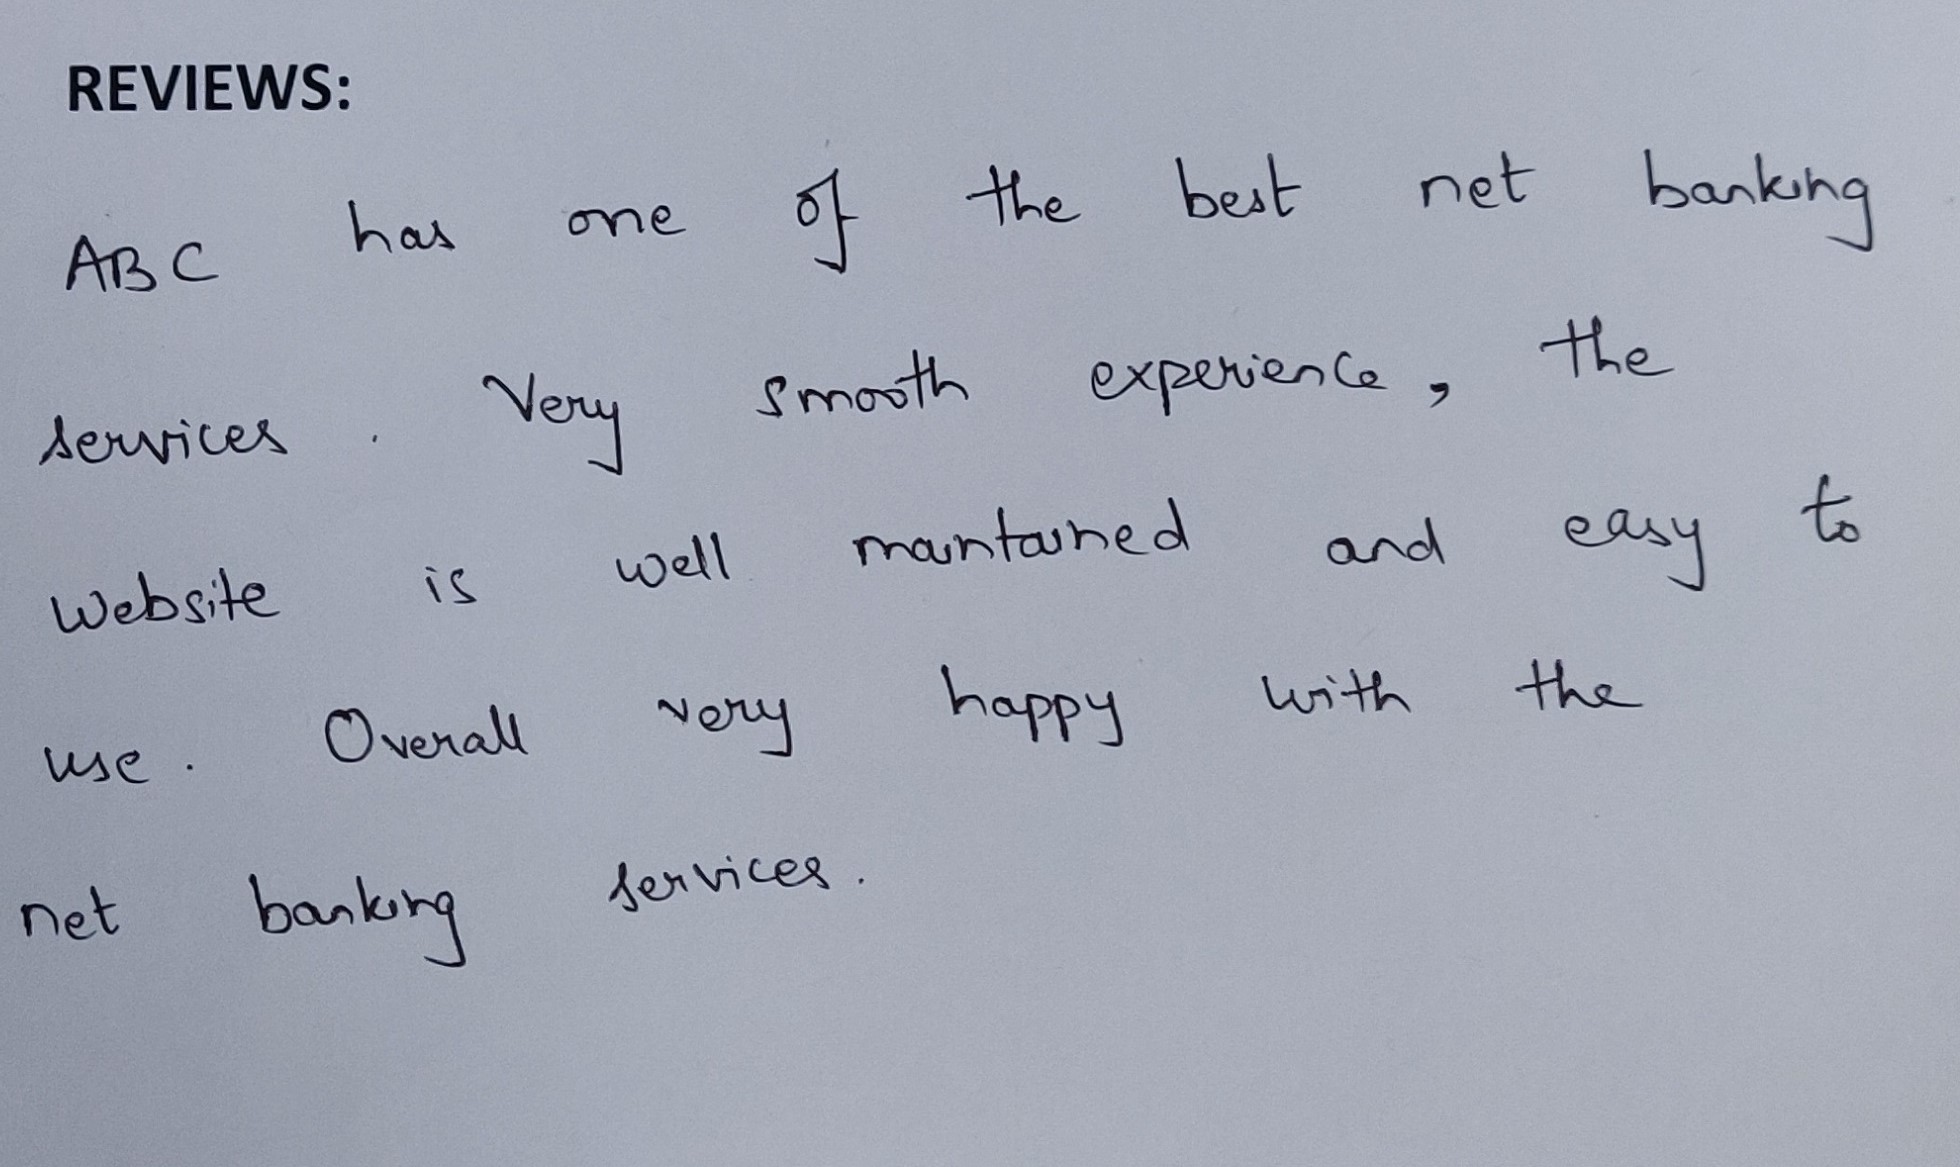 REVIEWS:
ABC has one of the best net banking
services. Very smooth experience, the
website is well maintained and easy to
use. Overall very happy with the
net banking services.